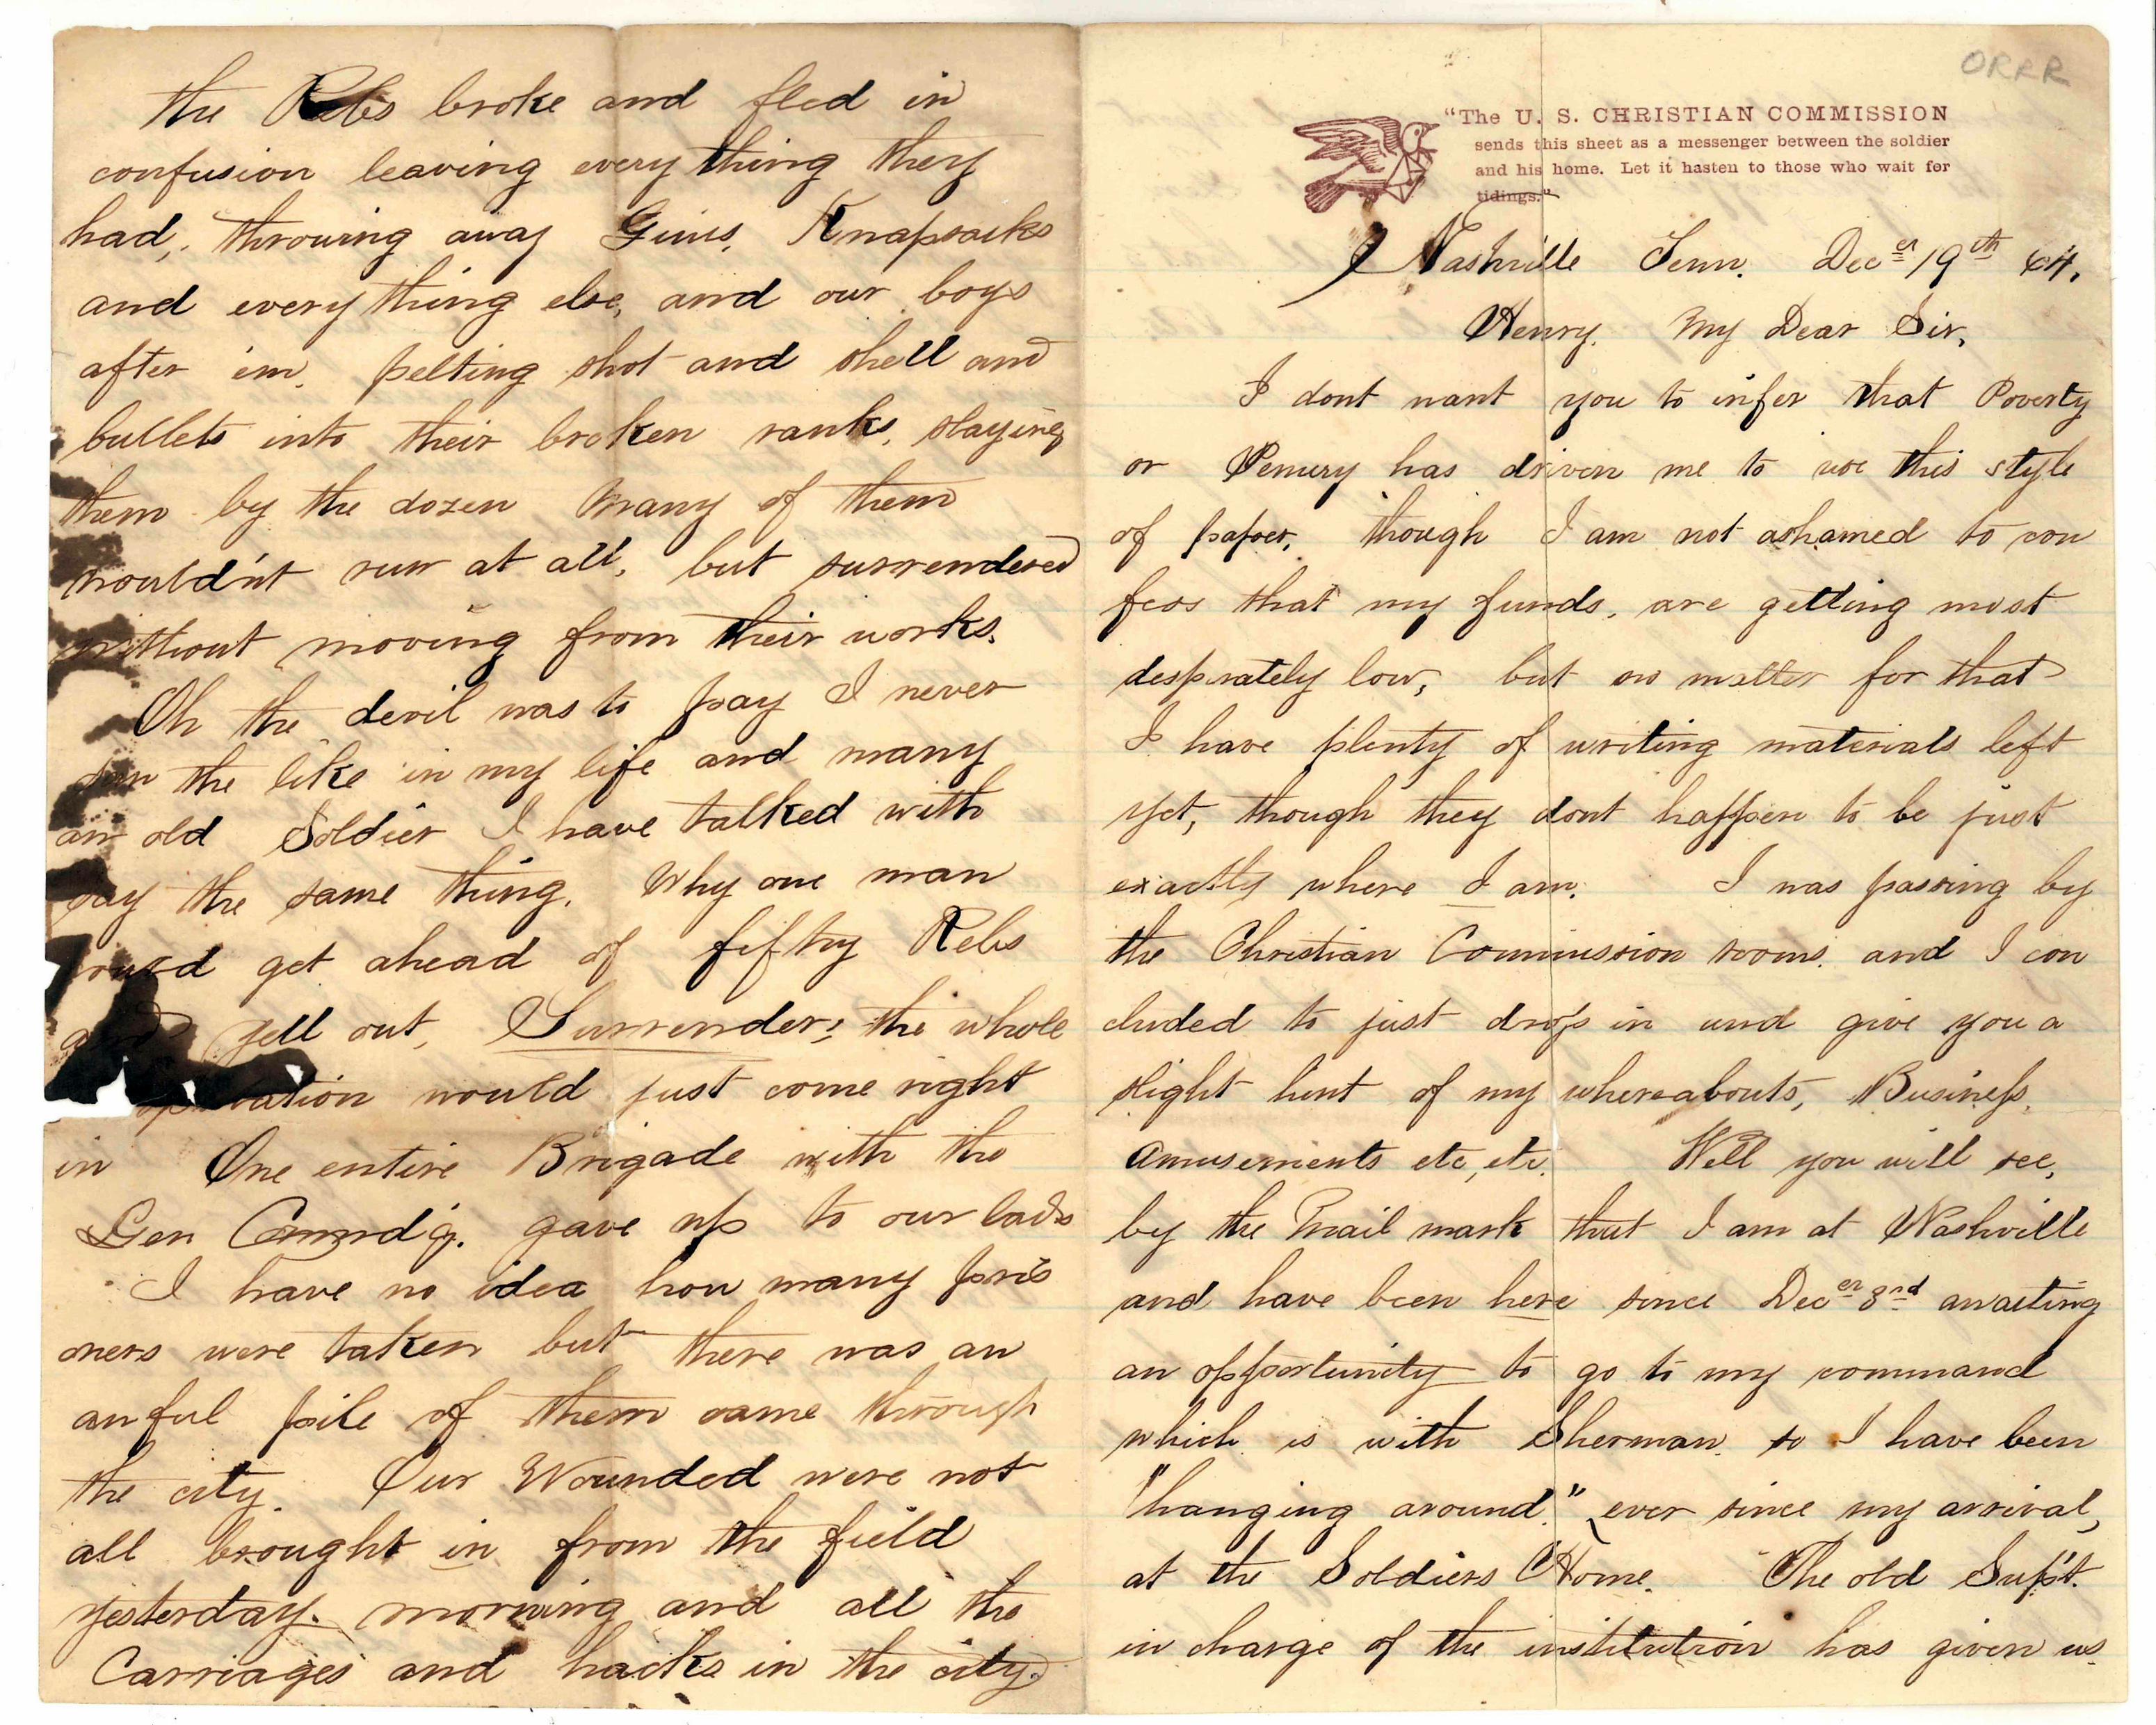 ORRR
"The U. S. CHRISTIAN COMMISSION
sends this sheet as a messenger between the soldier
and his home. Let it hasten to those who wait for
tidings."
Nashville Tenn. Dec er 19th 64.
Henry. My Dear Sir,
I dont want you to infer that Poverty
or Penury has driven me to use this style
of paper, though I am not ashamed to con
fess that my funds, are getting most
desprately low, but no matter for that
I have plenty of writing materials left
yet, though they dont happen to be just
exactly where I am. I was passing by
the Christian Commission rooms. and I con
cluded to just drop in and give you a
slight hint of my whereabouts, Business,
Amusements etc, etc. Well you will see,
by the Mail mark that I am at Nashville
and have been here since Dec er 3rd awaiting
an opportunity to go to my command
which is with Sherman. so I have been
"hanging around." ever since my arrival,
at the Soldiers Home. The old Sup't.
in charge of the institution has given us
the Rebs broke and fled in
confusion leaving every thing they
had, throwing away Guns, Knapsacks
and every thing else, and our boys
after em, pelting shot and shell and
bullets into their broken ranks, slaying
them by the dozen Many of them
wouldn't run at all, but surrendered
without moving from their works.
Oh the devil was to pay I never
saw the like in my life and many
an old Soldier I have talked with
say the same thing. Why one man
would get ahead of fifty Rebs
and yell out, Surrender, the whole
would just come right
in One entire Brigade with the
Gen Comdg. gave up to our lads
I have no idea how many pris
oners were taken but there was an
awful pile of them came through
the city. Our Wounded were not
all brought in from the field
yesterday. morning and all the
Carriages and hacks in the city.